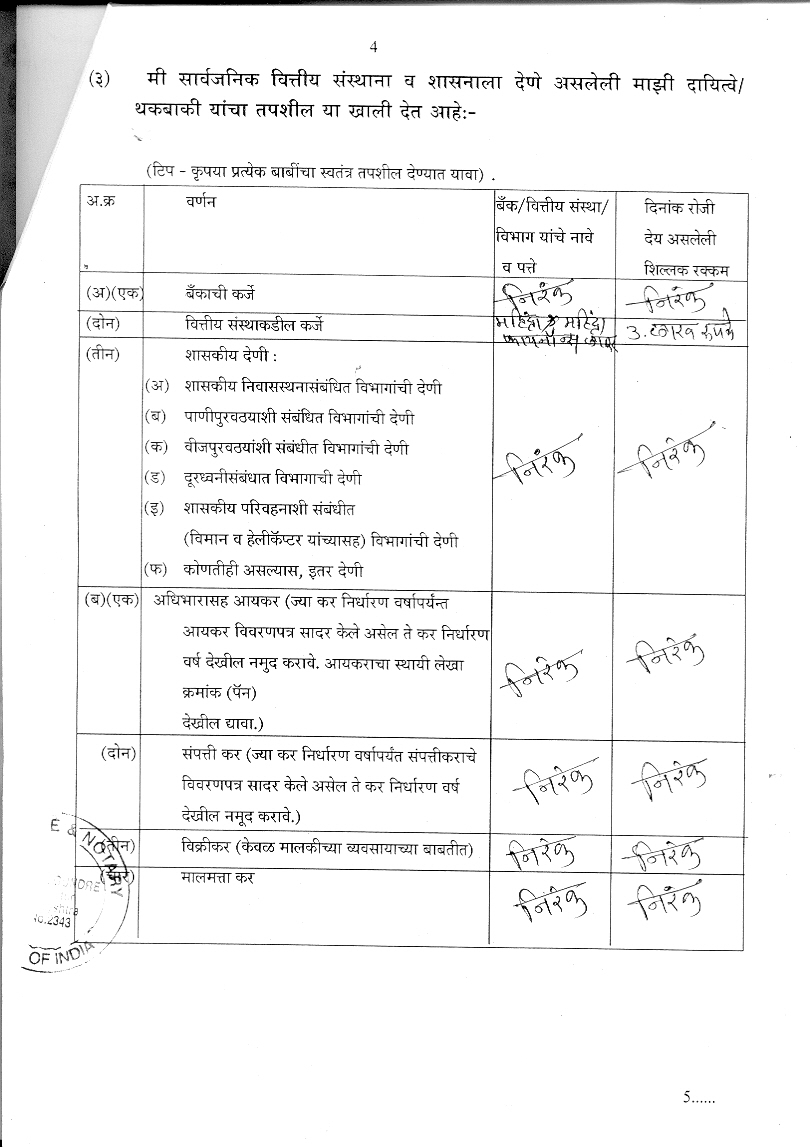 4
(३) मी सार्वजनिक वित्तीय संस्थाना व शासनाला देणे असलेली माझी दायित्वे/
थकबाकी यांचा तपशील या खाली देत आहे:-
(टिप - कृपया प्रत्येक बाबींचा स्वतंत्र तपशील देण्यात यावा) .
अ.क्र वर्णन बँक/वित्तीय संस्था/ दिनांक रोजी
विभाग यांचे नावे देय असलेली
व पत्ते शिल्लक रक्कम
(अ)(एक) बँकाची कर्जे निरंक निरंक
(दोन) वित्तीय संस्थाकडील कर्जे महिंद्रा & महिंद्रा 3. लाख रुपये
फायनान्स
(तीन) शासकीय देणी :
(अ) शासकीय निवासस्थनासंबंधित विभागांची देणी
(ब) पाणीपुरवठयाशी संबंधित विभागांची देणी
(क) वीजपुरवठयांशी संबंधीत विभागांची देणी निरंक निरंक
(ड) दूरध्वनीसंबंधात विभागाची देणी
(इ) शासकीय परिवहनाशी संबंधीत
(विमान व हेलीकॅप्टर यांच्यासह) विभागांची देणी
(फ) कोणतीही असल्यास, इतर देणी
(ब)(एक) अधिभारासह आयकर (ज्या कर निर्धारण वर्षापर्यंन्त
आयकर विवरणपत्र सादर केले असेल ते कर निर्धारण
वर्ष देखील नमुद करावे. आयकराचा स्थायी लेखा निरंक निरंक
क्रमांक (पॅन)
देखील द्यावा.)
(दोन) संपत्ती कर (ज्या कर निर्धारण वर्षापर्यंत संपत्तीकराचे
विवरणपत्र सादर केले असेल ते कर निर्धारण वर्ष निरंक निरंक
देखील नमूद करावे.)
(तीन) विक्रीकर (केवळ मालकीच्या व्यवसायाच्या बाबतीत) निरंक निरंक
(चार) मालमत्ता कर निरंक निरंक
E & NOTARY
No.2343
OF INDIA
5......